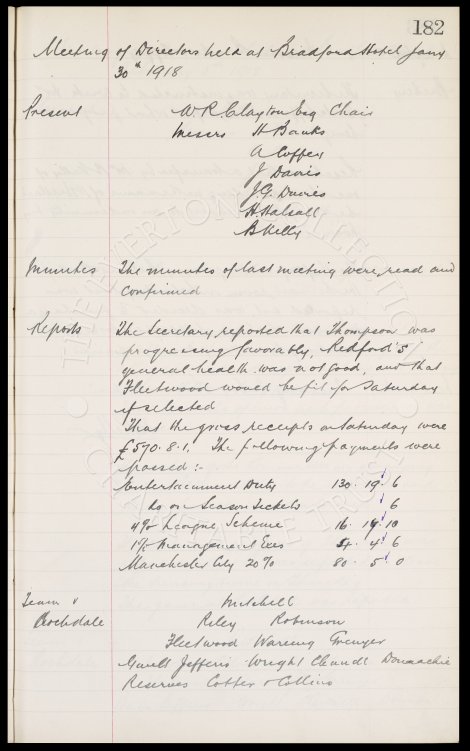 182
Meeting of Directors held at Bradford Hotel Jany
30th 1918
Present W.R. Clayton Esq Chair
Messrs H Banks
A Coffey
J Davies
J.G. Davies
H. Halsall
B Kelly
Minutes The minutes of last meeting were read and
confirmed
Reports The Secretary reported that Thompson was
progressing favorably, Redford's
general health was not good, and that
Fleetwood would be fit for Saturday
if selected
That the gross receipts on Saturday were
£570.8.1. The following payments were
passed :-
Entertainment Duty 130. 19. 6
do on Season Tickets 6
4% League Scheme 16. 14. 10
1% Management Exes 4. 4. 6
Manchester City 20% 80. 5. 0
Team v Mitchell
Rochdale Riley Robinson
Fleetwood Wareing Grenyer
Jefferis Wright Donnachie
Reserves Collins
THE EVERTON COLLECTION
CHARITABLE TRUST